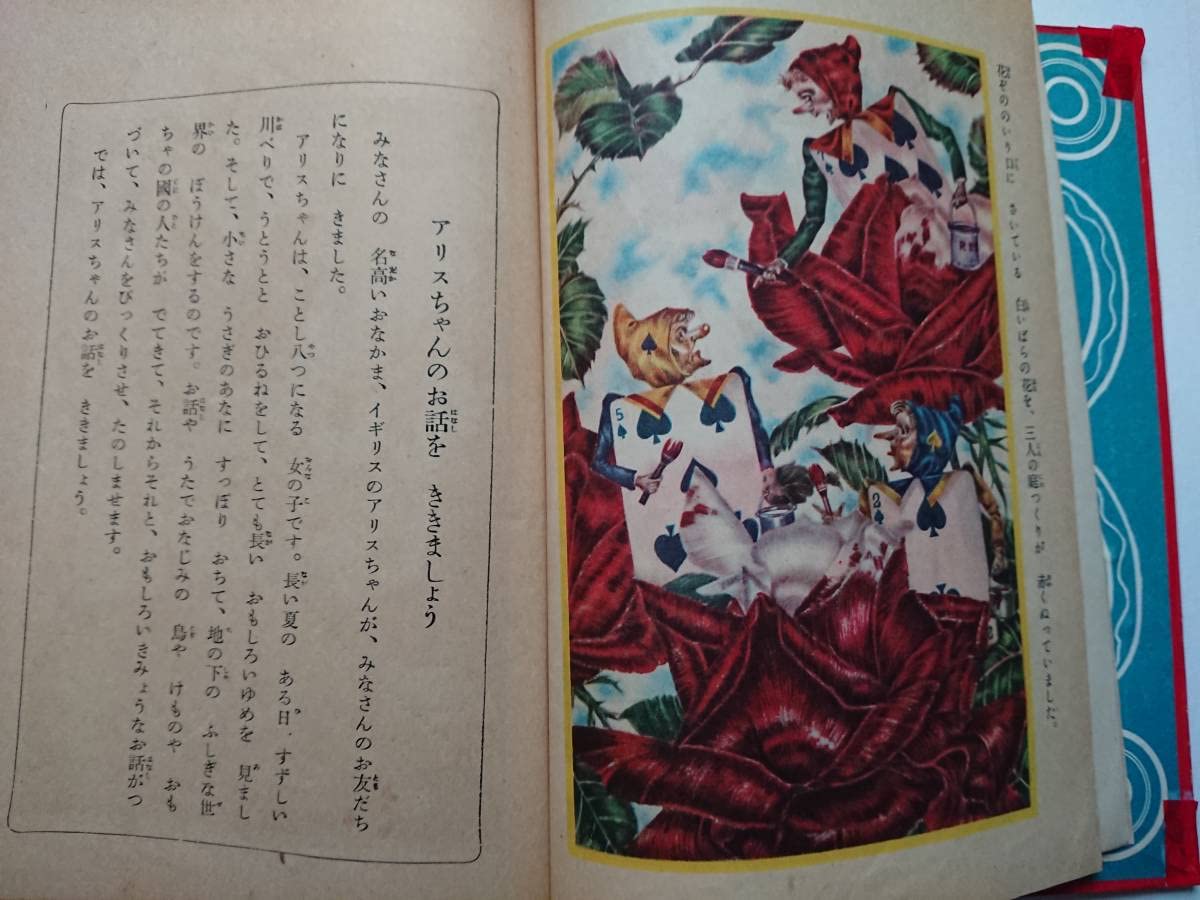 花ぞののいり口に　さいている　白いばらの花を、三人の庭つくりが　赤くぬっていました。
5
2
アリスちゃんのお話を　ききましょう
みなさんの　名高いおなかま、イギリスのアリスちゃんが、みなさんのお友だち
になりに　きました。
アリスちゃんは、ことし八つになる　女の子です。長い夏の　ある日、すずしい
川べりで、うとうとと　おひるねをして、とても長い　おもしろいゆめを　見まし
た。そして、小さな　うさぎのあなに　すっぽり　おちて、地の下の　ふしぎな世
界の　ぼうけんをするのです。お話や　うたでおなじみの　鳥や　けものや　おも
ちゃの國の人たちが　でてきて、それからそれと、おもしろいきみょうなお話がつ
づいて、みなさんをびっくりさせ、たのしませます。
では、アリスちゃんのお話を　ききましょう。